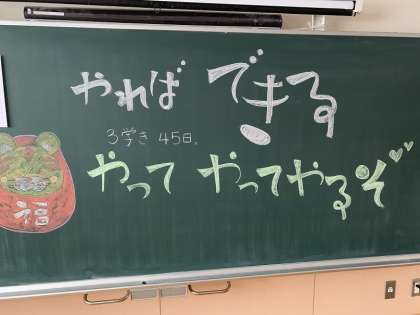 やれば できる
3学き 45日。
やって やってやるぞ
福